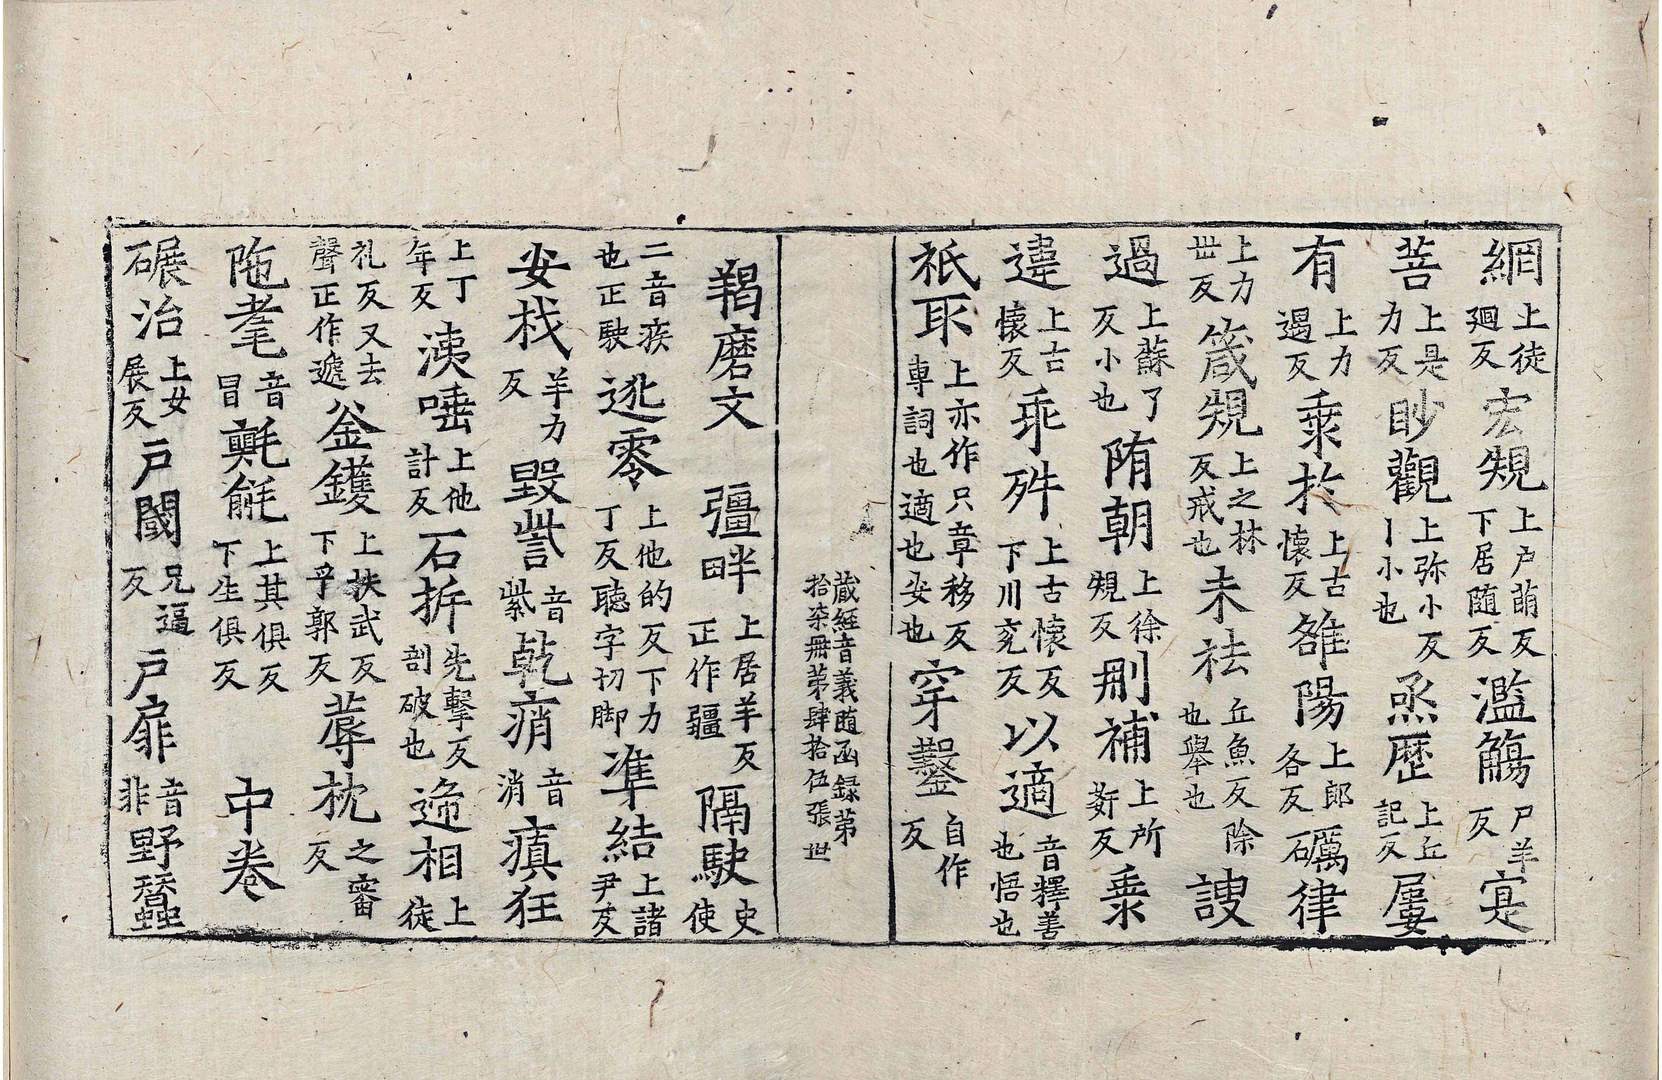 網上徒廻反宏規上户萠反下居随反濫觴尸羊反寔
菩上是力反眇觀上弥小反丨小也烝歷上丘記反屢
有上力遏反乖扵上古懷反雒陽上郎各反礪律
上力丗反箴規上之林反戒也未祛丘魚反除也舉也謏
過上蘇了反小也隋朝上徐規反刪補上所姧反乖
違上古懷反乖舛上古懷反下川兖反以適音釋善也悟也
祇取上亦作只章移反専詞也適也安也穿鑿自作反
蔵經音義随函録苐拾柒冊苐肆拾伍張 世
羯磨文 彊畔上居羊反正作疆 隔駛史使
二音疾也正駛逖零上他的反下力丁反聽字切脚準結上諸尹反
安栈羊力反毀訾音紫乾痟音消瘨狂
上丁年反洟唾上他計反石㧊先擊反剖破也遆相上徒
礼反又去聲正作遞釡鑊上扶武反下孚郭反蓐枕之審反
陁耄音冒氍毹上其俱反下生俱反 中卷
碾治上女展反戸閾兄逼反戸扉音非野蠶